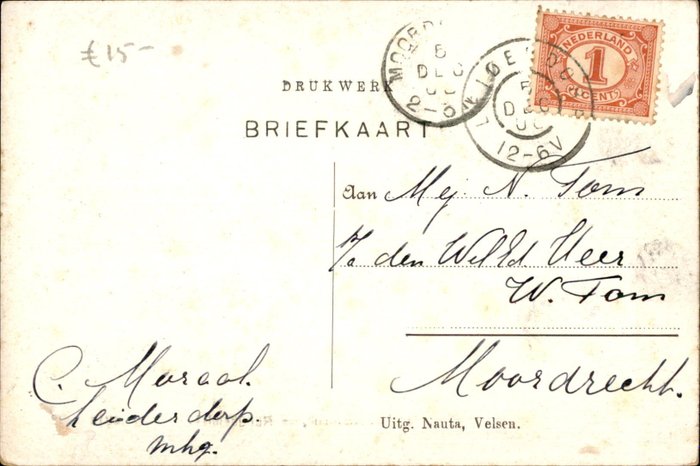 £15-
DRUKWERK
BRIEFKAART
MOORDR
5
DEC
2-6
5
DEC
12-6V
NEDERLAND
1
CENT
Aan Mej N. Tom
p/a den WelEd Heer
W. Tom
Moordrecht.
C. Moraal.
Leiderdorp
mhg.
Uitg. Nauta, Velsen.